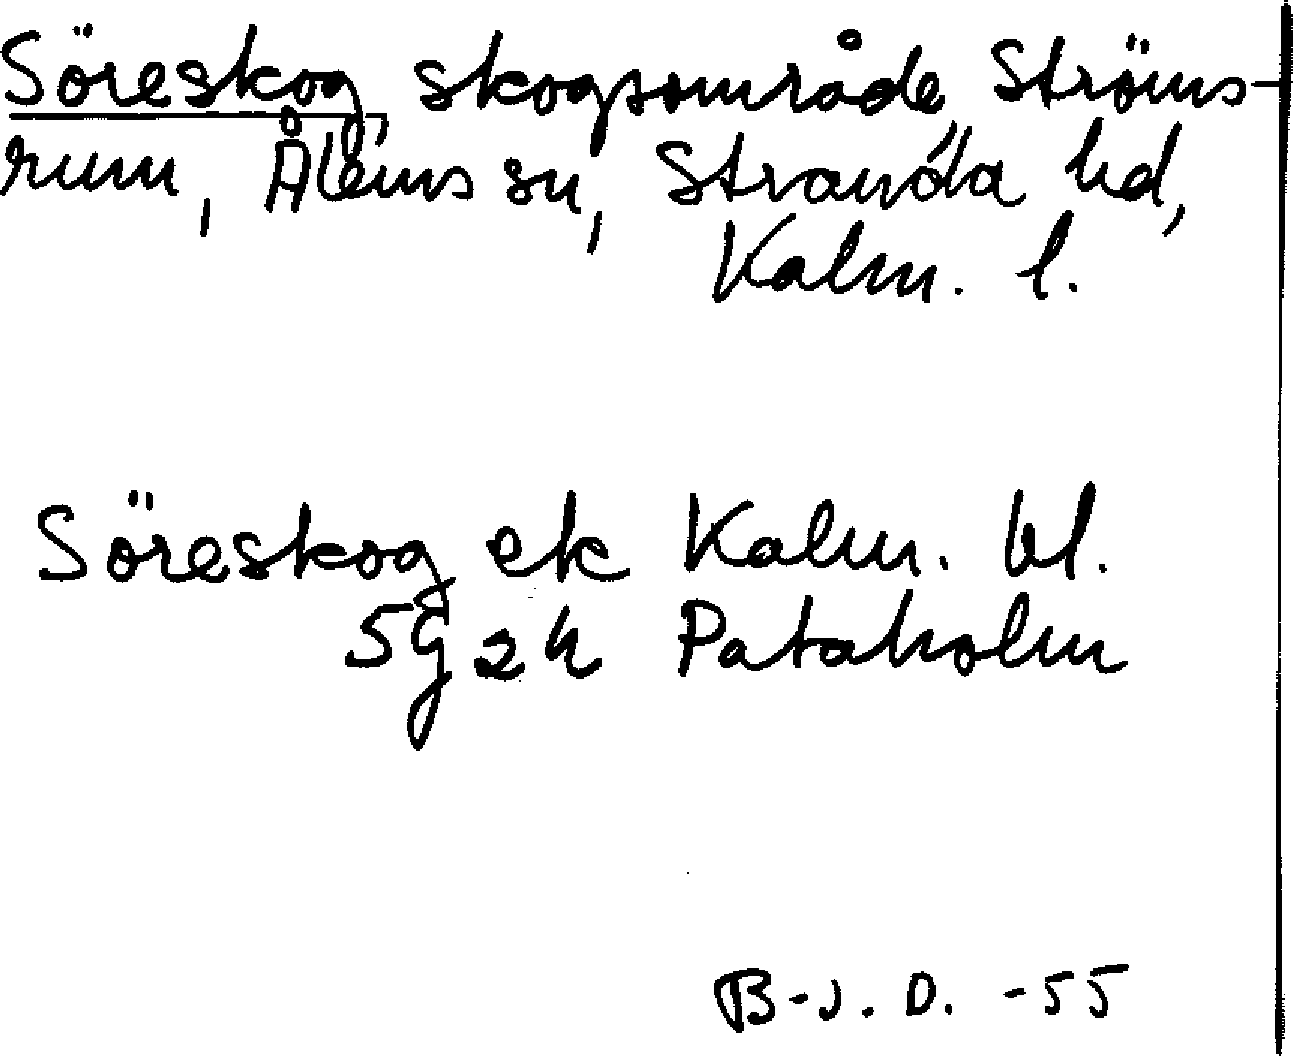 Söreskog, skogsområde, Ströms-
rum, Ålems sn, Stranda hd,
Kalm. l.
Söreskog ek Kalm. bl.
5g2h Pataholm
B-J. D. -55